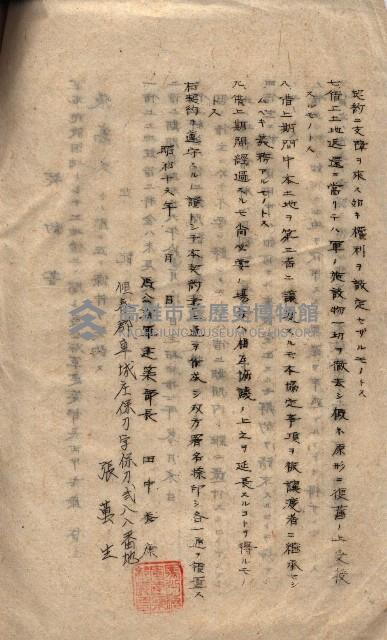 契約ニ支障ヲ來ス如キ權利ヲ設定セザルモノトス
七、借上土地返還ニ當リテハ軍ノ施設物一切ヲ撤去シ概ネ原形ニ復舊ノ上交換
スルモノトス
八、借上期間中本土地ヲ第三者ニ讓渡スルモ本協定事項ヲ被讓渡者ニ繼承セシ
ムベキ義務アルモノトス
九、借上期間經過スルモ尚必要ノ場合ハ相互協議ノ上之ヲ延長スルコトヲ得ルモノ
トス
右契約ヲ遵守スルニ證トシテ本契約書弐通ヲ作成シ双方署名捺印シ各一通ヲ保有ス
昭和十九年 月 日
海軍建築部長 田中
恆春郡車城庄保力字保力弐八八番地
張萬生
高雄市立歷史博物館
KAOHSIUNG MUSEUM OF HISTORY